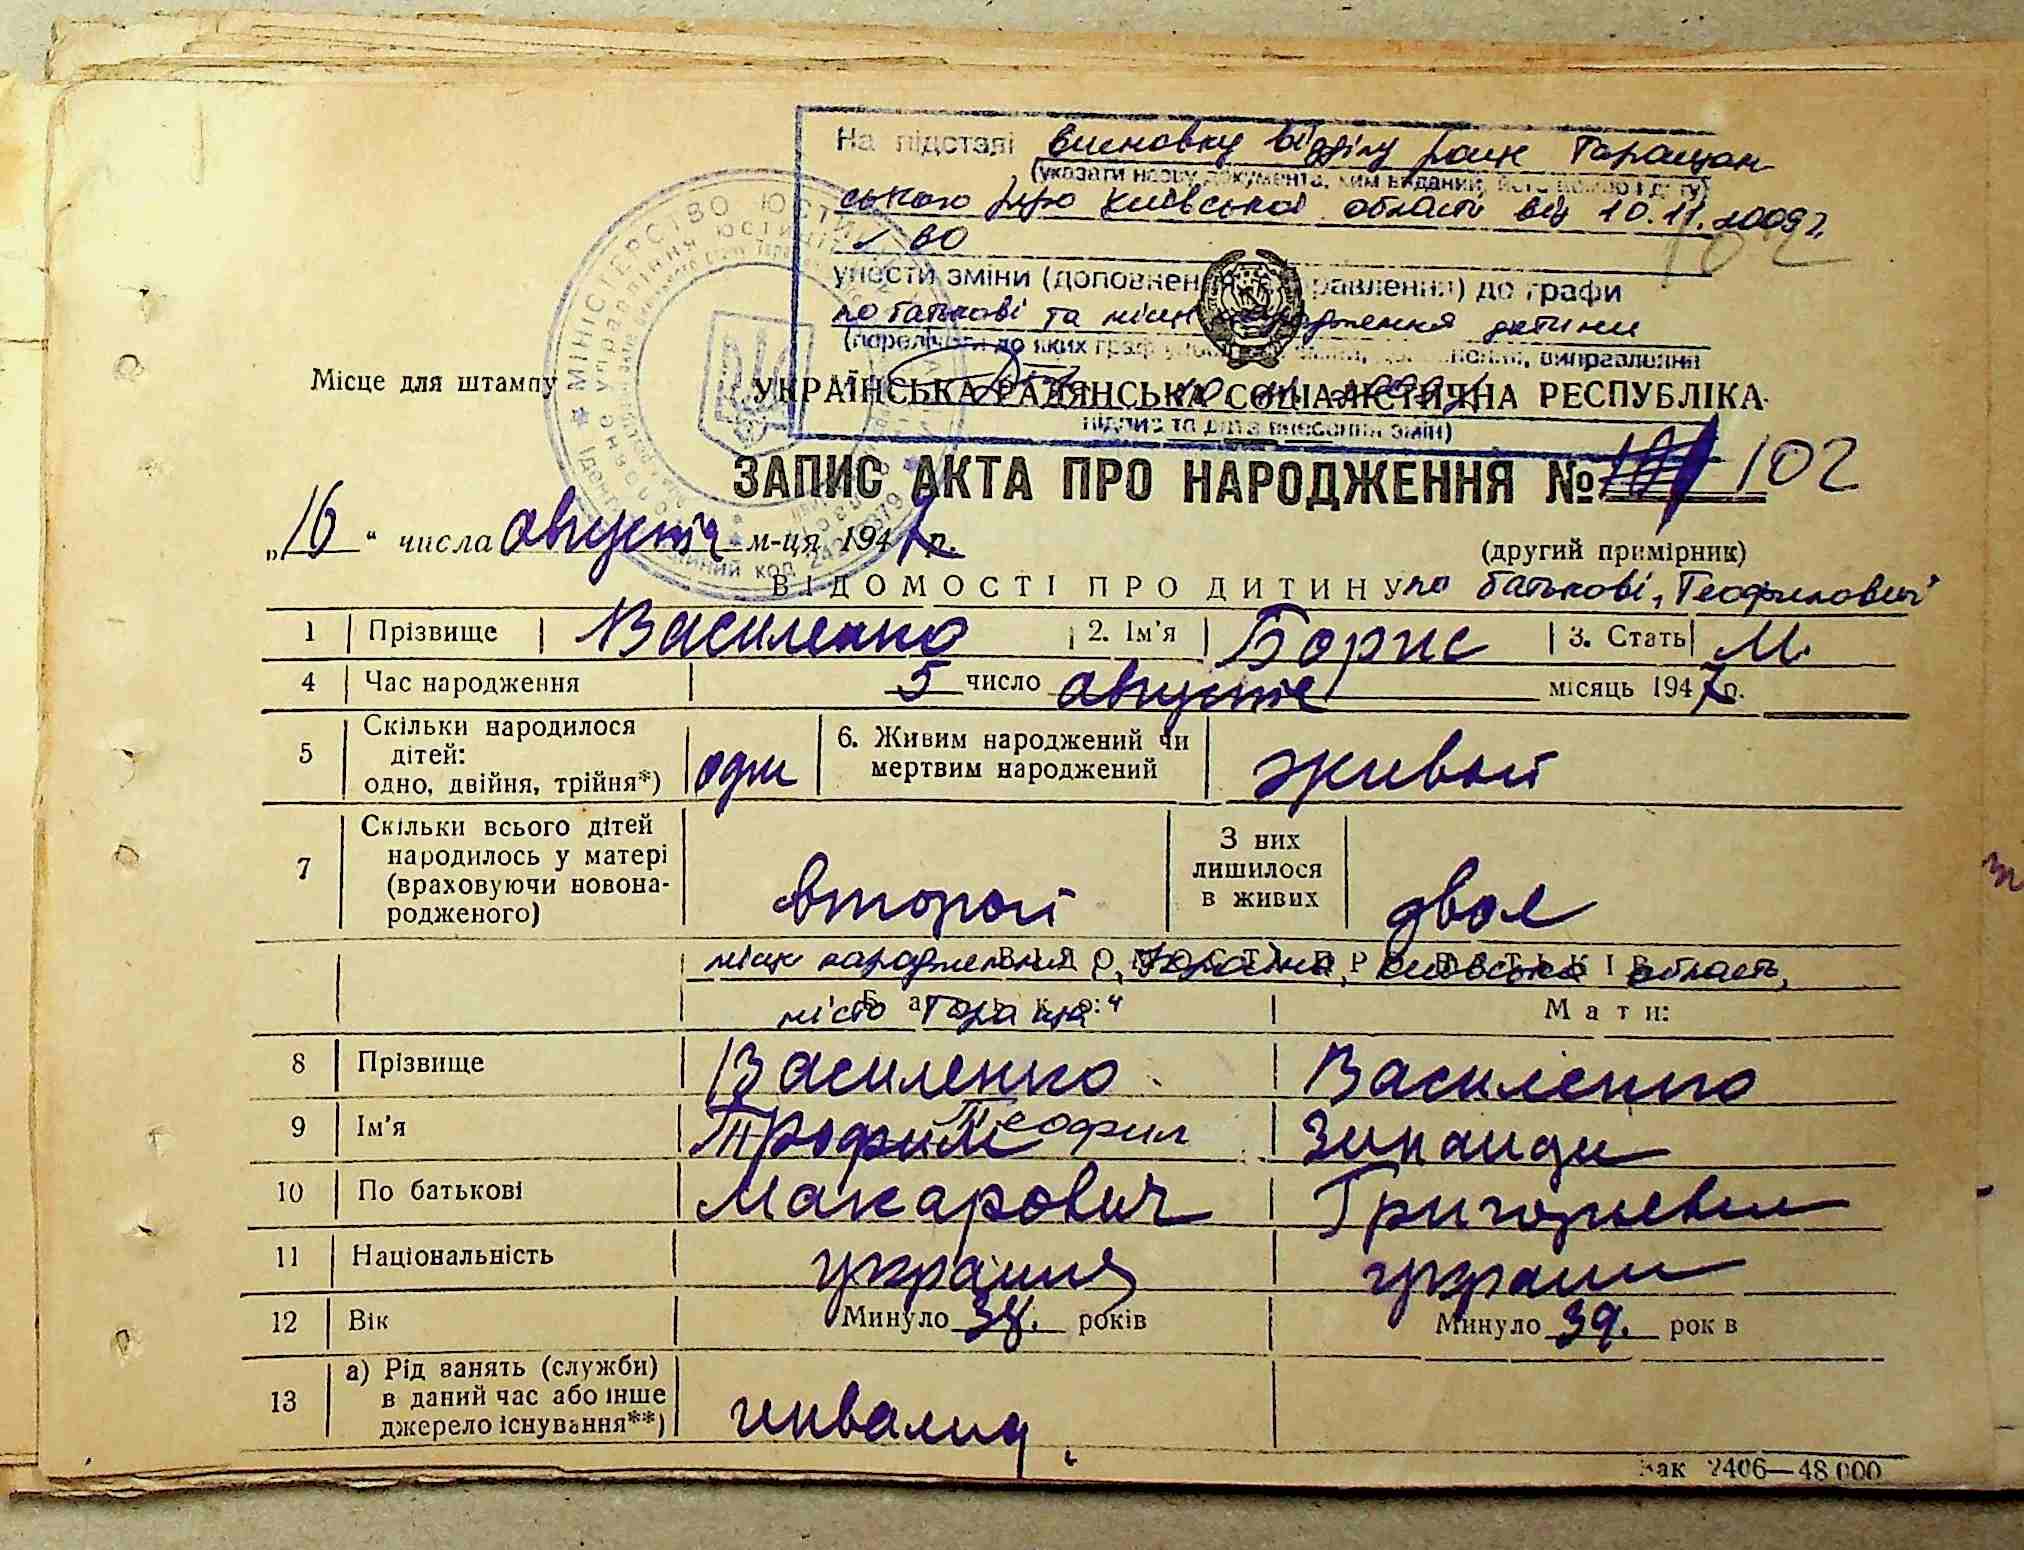 На підставі висновку відділу рацс Таращан
(указати назву документа, ким виданий, його номер і дату)
ського рую Київської області від 10.11.2009 р.
унести зміни (доповнення, виправлення) до графи
по батькові та місце народження дитини
(перелічити до яких граф унесені зміни, доповнення, виправлення
підпис та дата внесення змін)
МІНІСТЕРСТВО ЮСТИЦІЇ
Місце для штампу
УКРАЇНСЬКА РАДЯНСЬКА СОЦІАЛІСТИЧНА РЕСПУБЛІКА
ЗАПИС АКТА ПРО НАРОДЖЕННЯ № 102
„16“ числа августа м-ця 1947 р.
(другий примірник)
ВІДОМОСТІ ПРО ДИТИНУ по батькові „Теофилович"
1 Прізвище Василенко 2. Ім'я Борис 3. Стать М.
4 Час народження 5 число августа місяць 1947 р.
5 Скільки народилося дітей: одно, двійня, трійня*) одн 6. Живим народжений чи мертвим народжений живой
7 Скільки всього дітей народилось у матері (враховуючи новонародженого) второй З них лишилося в живих двое
ВІДОМОСТІ ПРО БАТЬКІВ
місце народження „Україна, Київська область,
місто Тараща"
Батько: Мати:
8 Прізвище Василенко Василенко
9 Ім'я Трофим Теофил Зинаида
10 По батькові Макарович Григорьевна
11 Національність украинец украин
12 Вік Минуло 38. років Минуло 39. років
13 а) Рід занять (служби) в даний час або інше джерело існування**) инвалид
Зак 2406—48.000